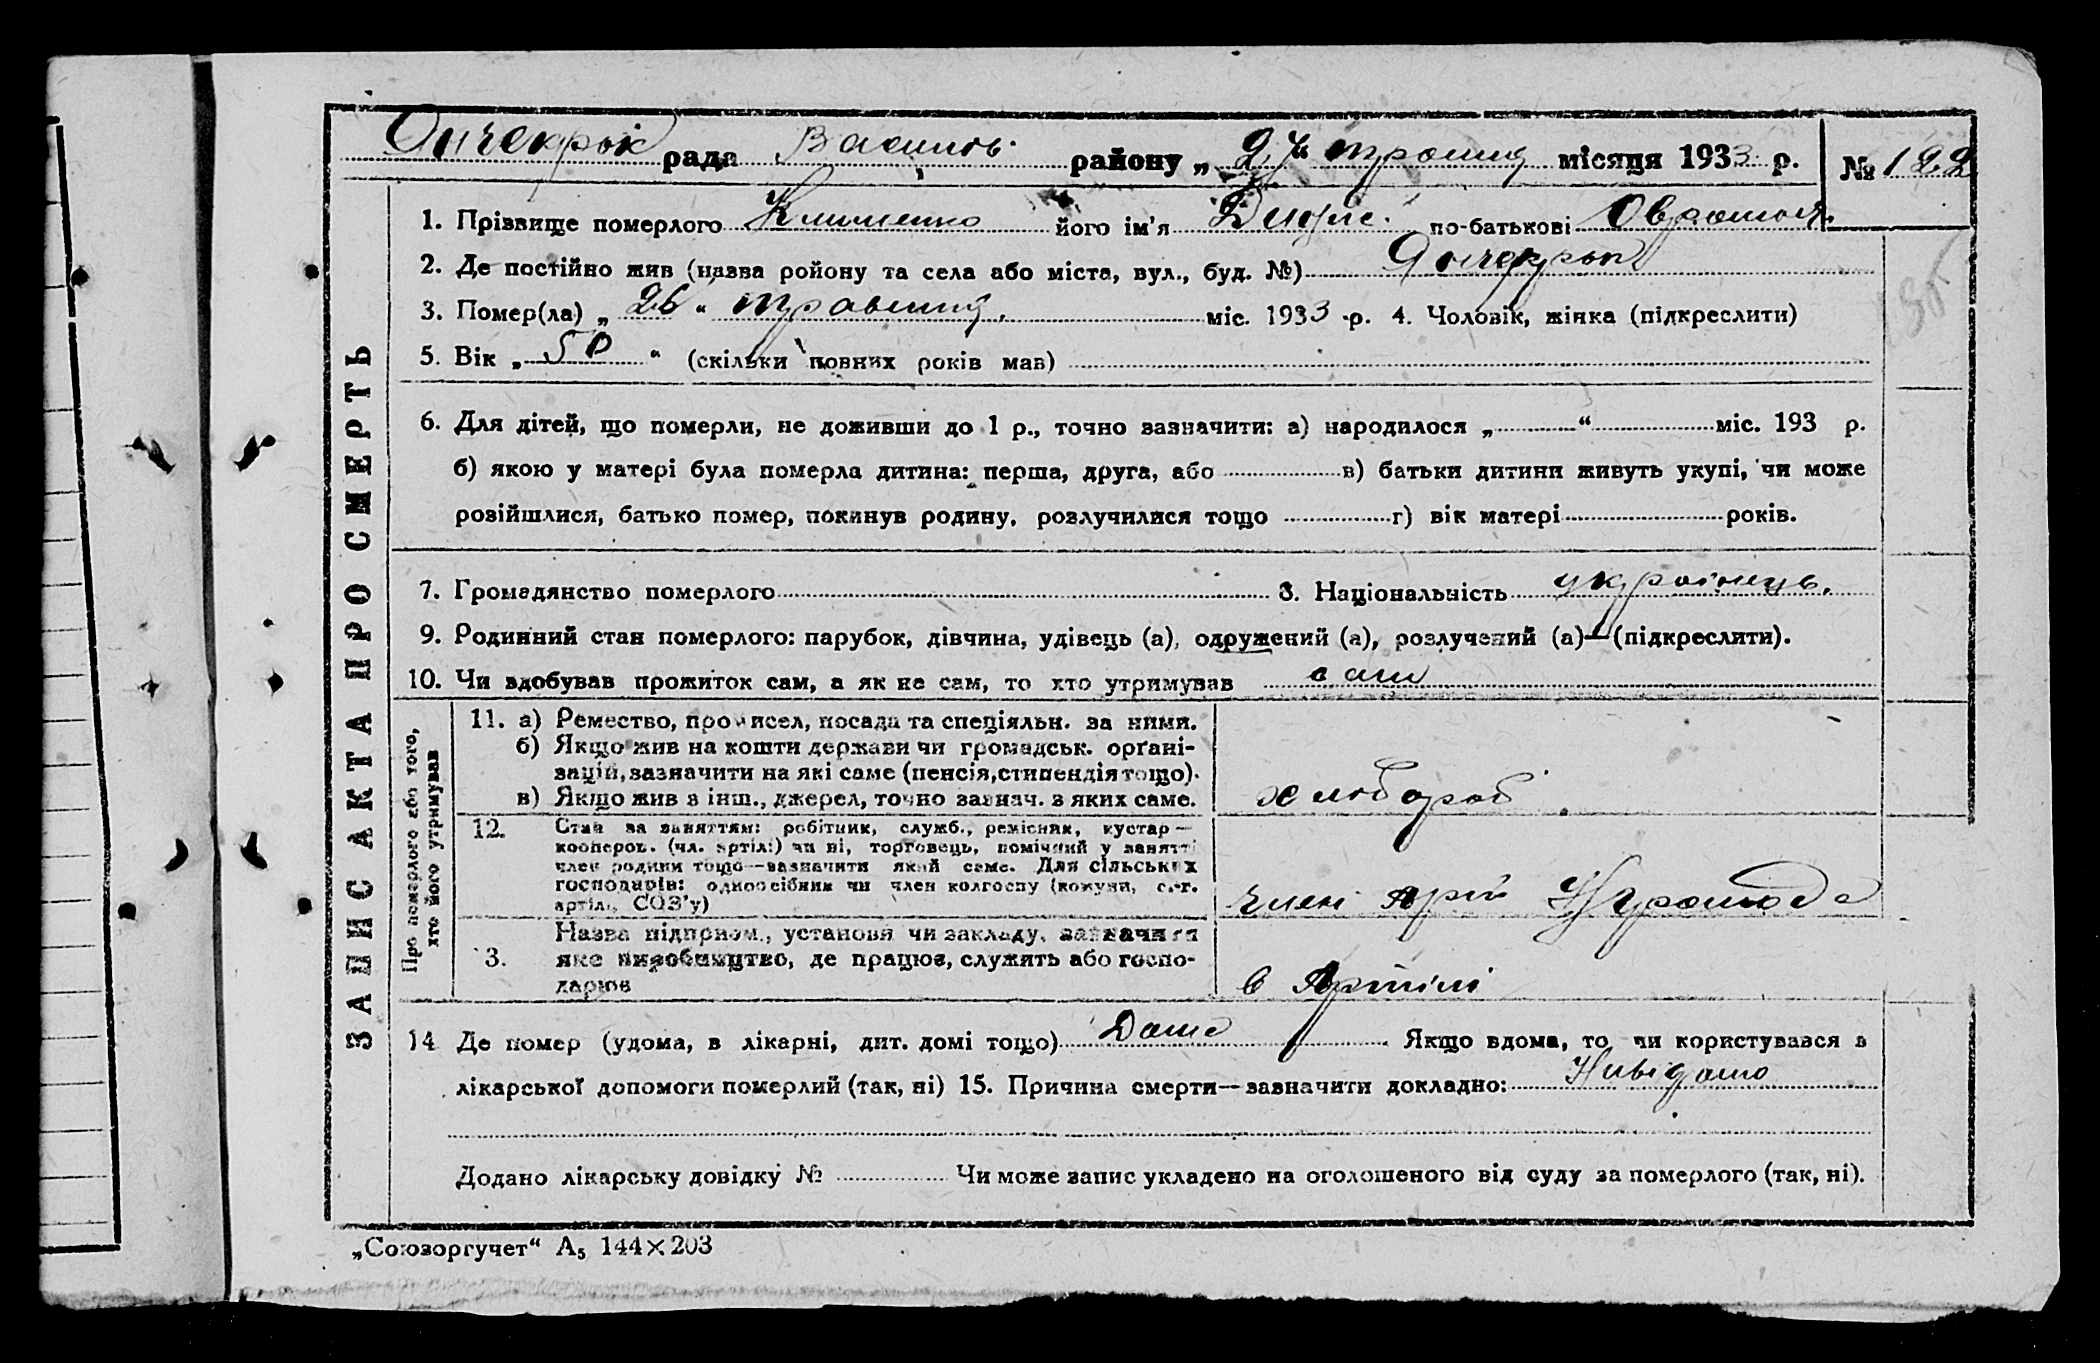 рада Василь. району „27“ травня місяця 1933 р. № 122
1. Прізвище померлого Клименко його ім'я по-батькові
2. Де постійно жив (назва ройону та села або міста, вул., буд. №)
3. Помер(ла) „26“ травня. міс. 1933 р. 4. Чоловік, жінка (підкреслити)
5. Вік „50“ (скільки повних років мав)
6. Для дітей, що померли, не доживши до 1 р., точно зазначити: а) народилося „ “ міс. 193 р.
б) якою у матері була померла дитина: перша, друга, або в) батьки дитини живуть укупі, чи може
розійшлися, батько помер, покинув родину, розлучилися тощо г) вік матері років.
7. Громадянство померлого 8. Національність українець.
9. Родинний стан померлого: парубок, дівчина, удівець (а), одружений (а), розлучений (а)—(підкреслити).
10. Чи здобував прожиток сам, а як не сам, то хто утримував сам
ЗАПИС АКТА ПРО СМЕРТЬ
Про померлого або того,
хто його утримував
11. а) Ремество, промисел, посада та спеціяльн. за ними.
б) Якщо жив на кошти держави чи громадськ. орґані-
зацій, зазначити на які саме (пенсія, стипендія тощо).
в) Якщо жив з інш., джерел, точно зазнач. з яких саме.
хлібороб
12. Стан за заняттям: робітник, служб., ремісник, кустар—
кооперов. (чл. артіл.) чи ні, торговець, помічний у занятті
член родини тощо—зазначити який саме. Для сільських
господарів: одноосібник чи член колгоспу (комуни, с.-г.
артіл., СОЗ'у)
член
13. Назва підприєм., установи чи закладу, зазначити
яке виробництво, де працює, служить або госпо-
дарює
в Артілі
14 Де помер (удома, в лікарні, дит. домі тощо) Дома Якщо вдома, то чи користувався з
лікарської допомоги померлий (так, ні) 15. Причина смерти—зазначити докладно: Нивідомо
Додано лікарську довідку № Чи може запис укладено на оголошеного від суду за померлого (так, ні).
„Союзоргучет“ А₅ 144×203